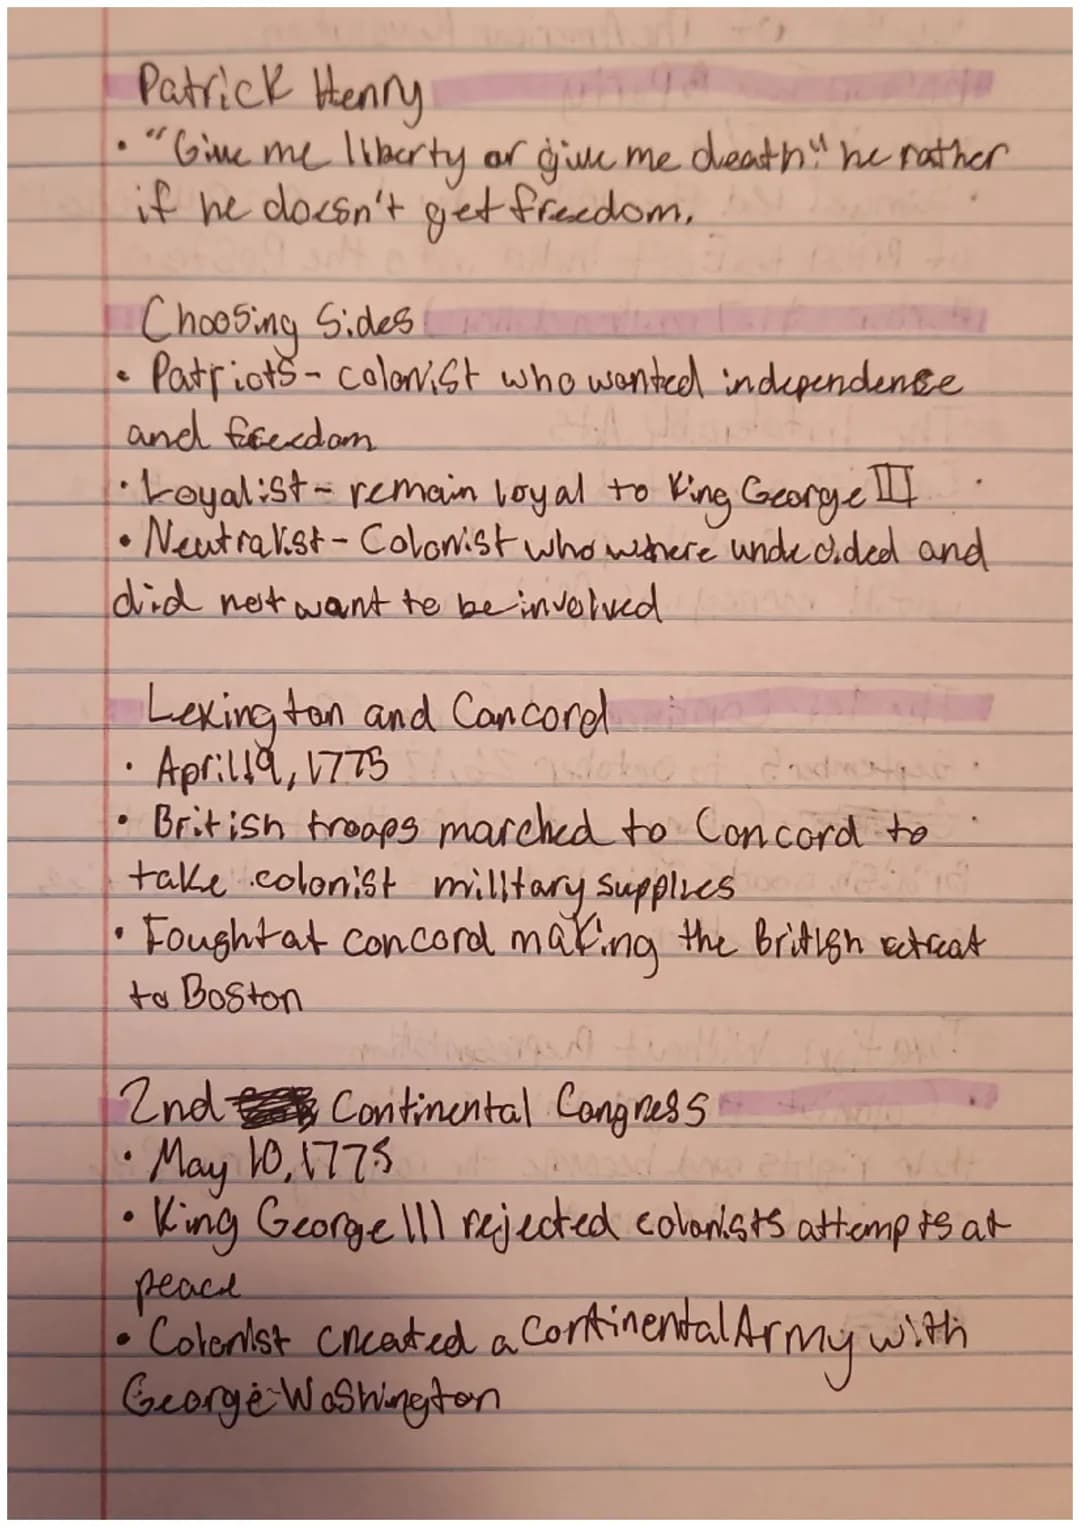 Patrick Henry
• "Give me liberty or give me death!" he rather
if he doesn't get freedom.
Choosing Sides
• Patriots - colonist who wanted independense
and freedom
• Loyalist - remain loyal to King George III
• Neutralist - Colonist who where undecided and
did not want to be involved
Lexington and Concord
• April 19, 1775
• British troops marched to Concord to
take colonist military supplies
• Fought at concord making the British retreat
to Boston
2nd Continental Congress
• May 10, 1775
• King George III rejected colonists attempts at
peace
• Colonist created a Continental Army with
George Washington